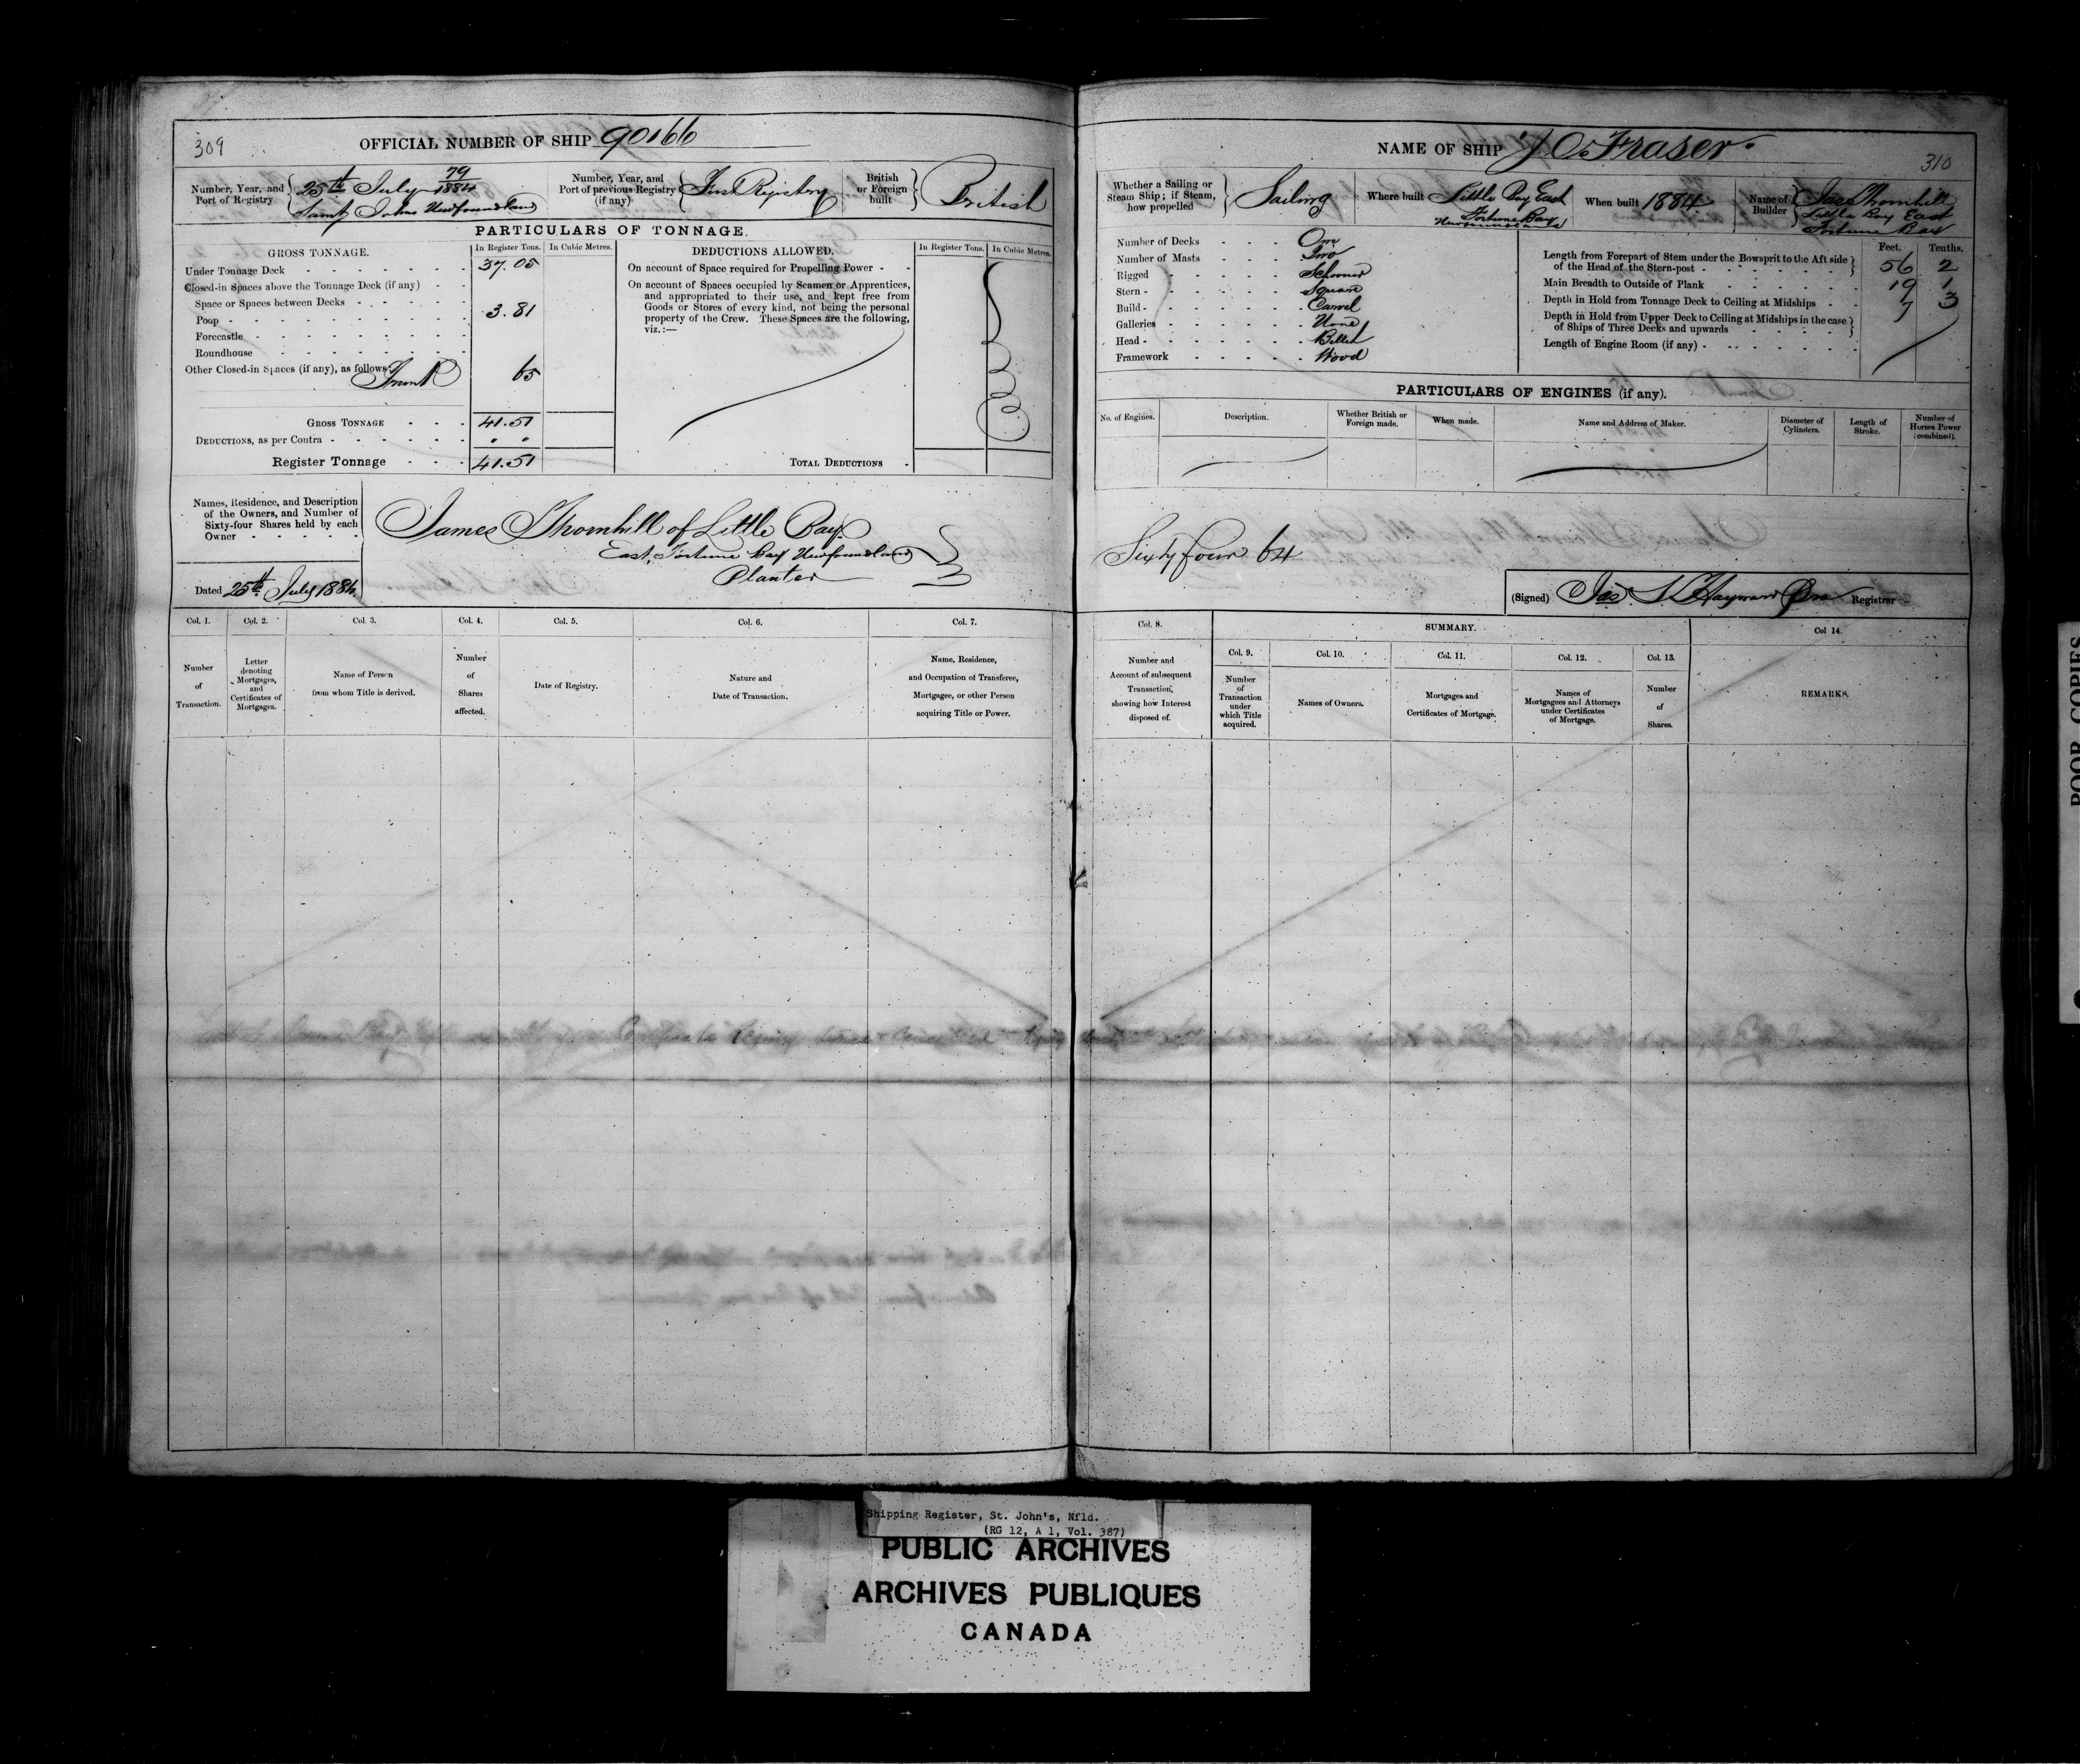 309
OFFICIAL NUMBER OF SHIP 90166
Number, Year, and Port of Registry
79
25th July 1884
Saint Johns Newfoundland
Number, Year, and Port of previous Registry (if any)
First Registry
British or Foreign built
British
PARTICULARS OF TONNAGE.
GROSS TONNAGE.
In Register Tons.
In Cubic Metres.
DEDUCTIONS ALLOWED.
In Register Tons.
In Cubic Metres.
Under Tonnage Deck
37.05
Closed-in Spaces above the Tonnage Deck (if any)
Space or Spaces between Decks
Poop
3.81
Forecastle
Roundhouse
Other Closed-in Spaces (if any), as follows:
Trunk
65
GROSS TONNAGE
41.51
DEDUCTIONS, as per Contra
" "
Register Tonnage
41.51
On account of Space required for Propelling Power
On account of Spaces occupied by Seamen or Apprentices,
and appropriated to their use, and kept free from
Goods or Stores of every kind, not being the personal
property of the Crew. These Spaces are the following,
viz.:—
TOTAL DEDUCTIONS
Names, Residence, and Description
of the Owners, and Number of
Sixty-four Shares held by each
Owner
James Thornhill of Little Bay
East, Fortune Bay Newfoundland
Planter
Dated 25th July 1884.
Col. 1.
Col. 2.
Col. 3.
Col. 4.
Col. 5.
Col. 6.
Col. 7.
Number of Transaction.
Letter denoting Mortgages, and Certificates of Mortgages.
Name of Person from whom Title is derived.
Number of Shares affected.
Date of Registry.
Nature and Date of Transaction.
Name, Residence, and Occupation of Transferee, Mortgagee, or other Person acquiring Title or Power.
Certificate Registry
NAME OF SHIP "J O. Fraser"
310
Whether a Sailing or Steam Ship; if Steam, how propelled
Sailing
Where built
Little Bay East
Fortune Bay
Newfoundland
When built 1884
Name of Builder
Jas Thornhill
Little Bay East
Fortune Bay
Number of Decks One
Number of Masts Two
Rigged Schooner
Stern Square
Build Carvel
Galleries None
Head Billet
Framework Wood
Feet. Tenths.
Length from Forepart of Stem under the Bowsprit to the Aft side
of the Head of the Stern-post 56 2
Main Breadth to Outside of Plank 19 1
Depth in Hold from Tonnage Deck to Ceiling at Midships 7 3
Depth in Hold from Upper Deck to Ceiling at Midships in the case
of Ships of Three Decks and upwards
Length of Engine Room (if any)
PARTICULARS OF ENGINES (if any).
No. of Engines.
Description.
Whether British or Foreign made.
When made.
Name and Address of Maker.
Diameter of Cylinders.
Length of Stroke.
Number of Horses Power (combined).
Sixty four 64
(Signed) Jas Hayward Registrar
Col. 8.
SUMMARY.
Col 14.
Col. 9.
Col. 10.
Col. 11.
Col. 12.
Col. 13.
Number and Account of subsequent Transaction, showing how Interest disposed of.
Number of Transaction under which Title acquired.
Names of Owners.
Mortgages and Certificates of Mortgage.
Names of Mortgagees and Attorneys under Certificates of Mortgage.
Number of Shares.
REMARKS.
POOR COPIES
Shipping Register, St. John's, Nfld.
(RG 12, A 1, Vol. 387)
PUBLIC ARCHIVES
ARCHIVES PUBLIQUES
CANADA